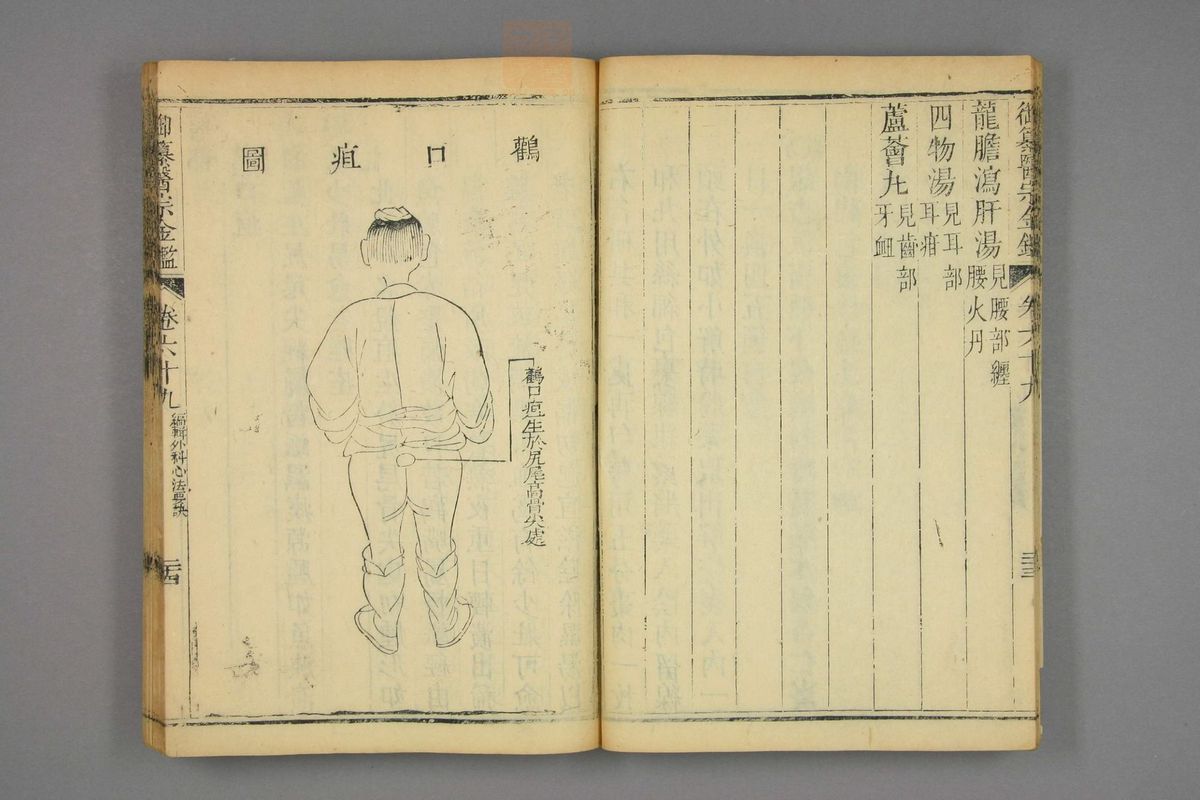 御纂醫宗金鑑
卷六十九
三三
龍膽瀉肝湯見腰部纏腰火丹
四物湯見耳部耳疳
蘆薈丸見齒部牙衄
鸛口疽圖
鸛口疽生於尻尾高骨尖處
御纂醫宗金鑑
卷六十九
編輯外科心法要訣
三四